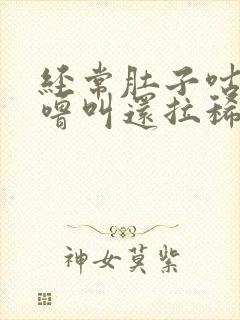 經常肚子咕
嚕叫還拉稀
神女莫紫